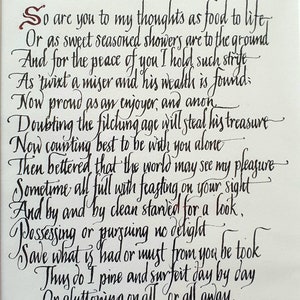 So are you to my thoughts as food to life
Or as sweet seasoned showers are to the ground
And for the peace of you I hold such strife
As 'twixt a miser and his wealth is found:
Now proud as an enjoyer, and anon
Doubting the filching age will steal his treasure
Now counting best to be with you alone
Then bettered that the world may see my pleasure
Sometime all full with feasting on your sight
And by and by clean starved for a look,
Possessing or pursuing no delight
Save what is had or must from you be took
Thus do I pine and surfeit day by day
Or gluttoning on all, or all away